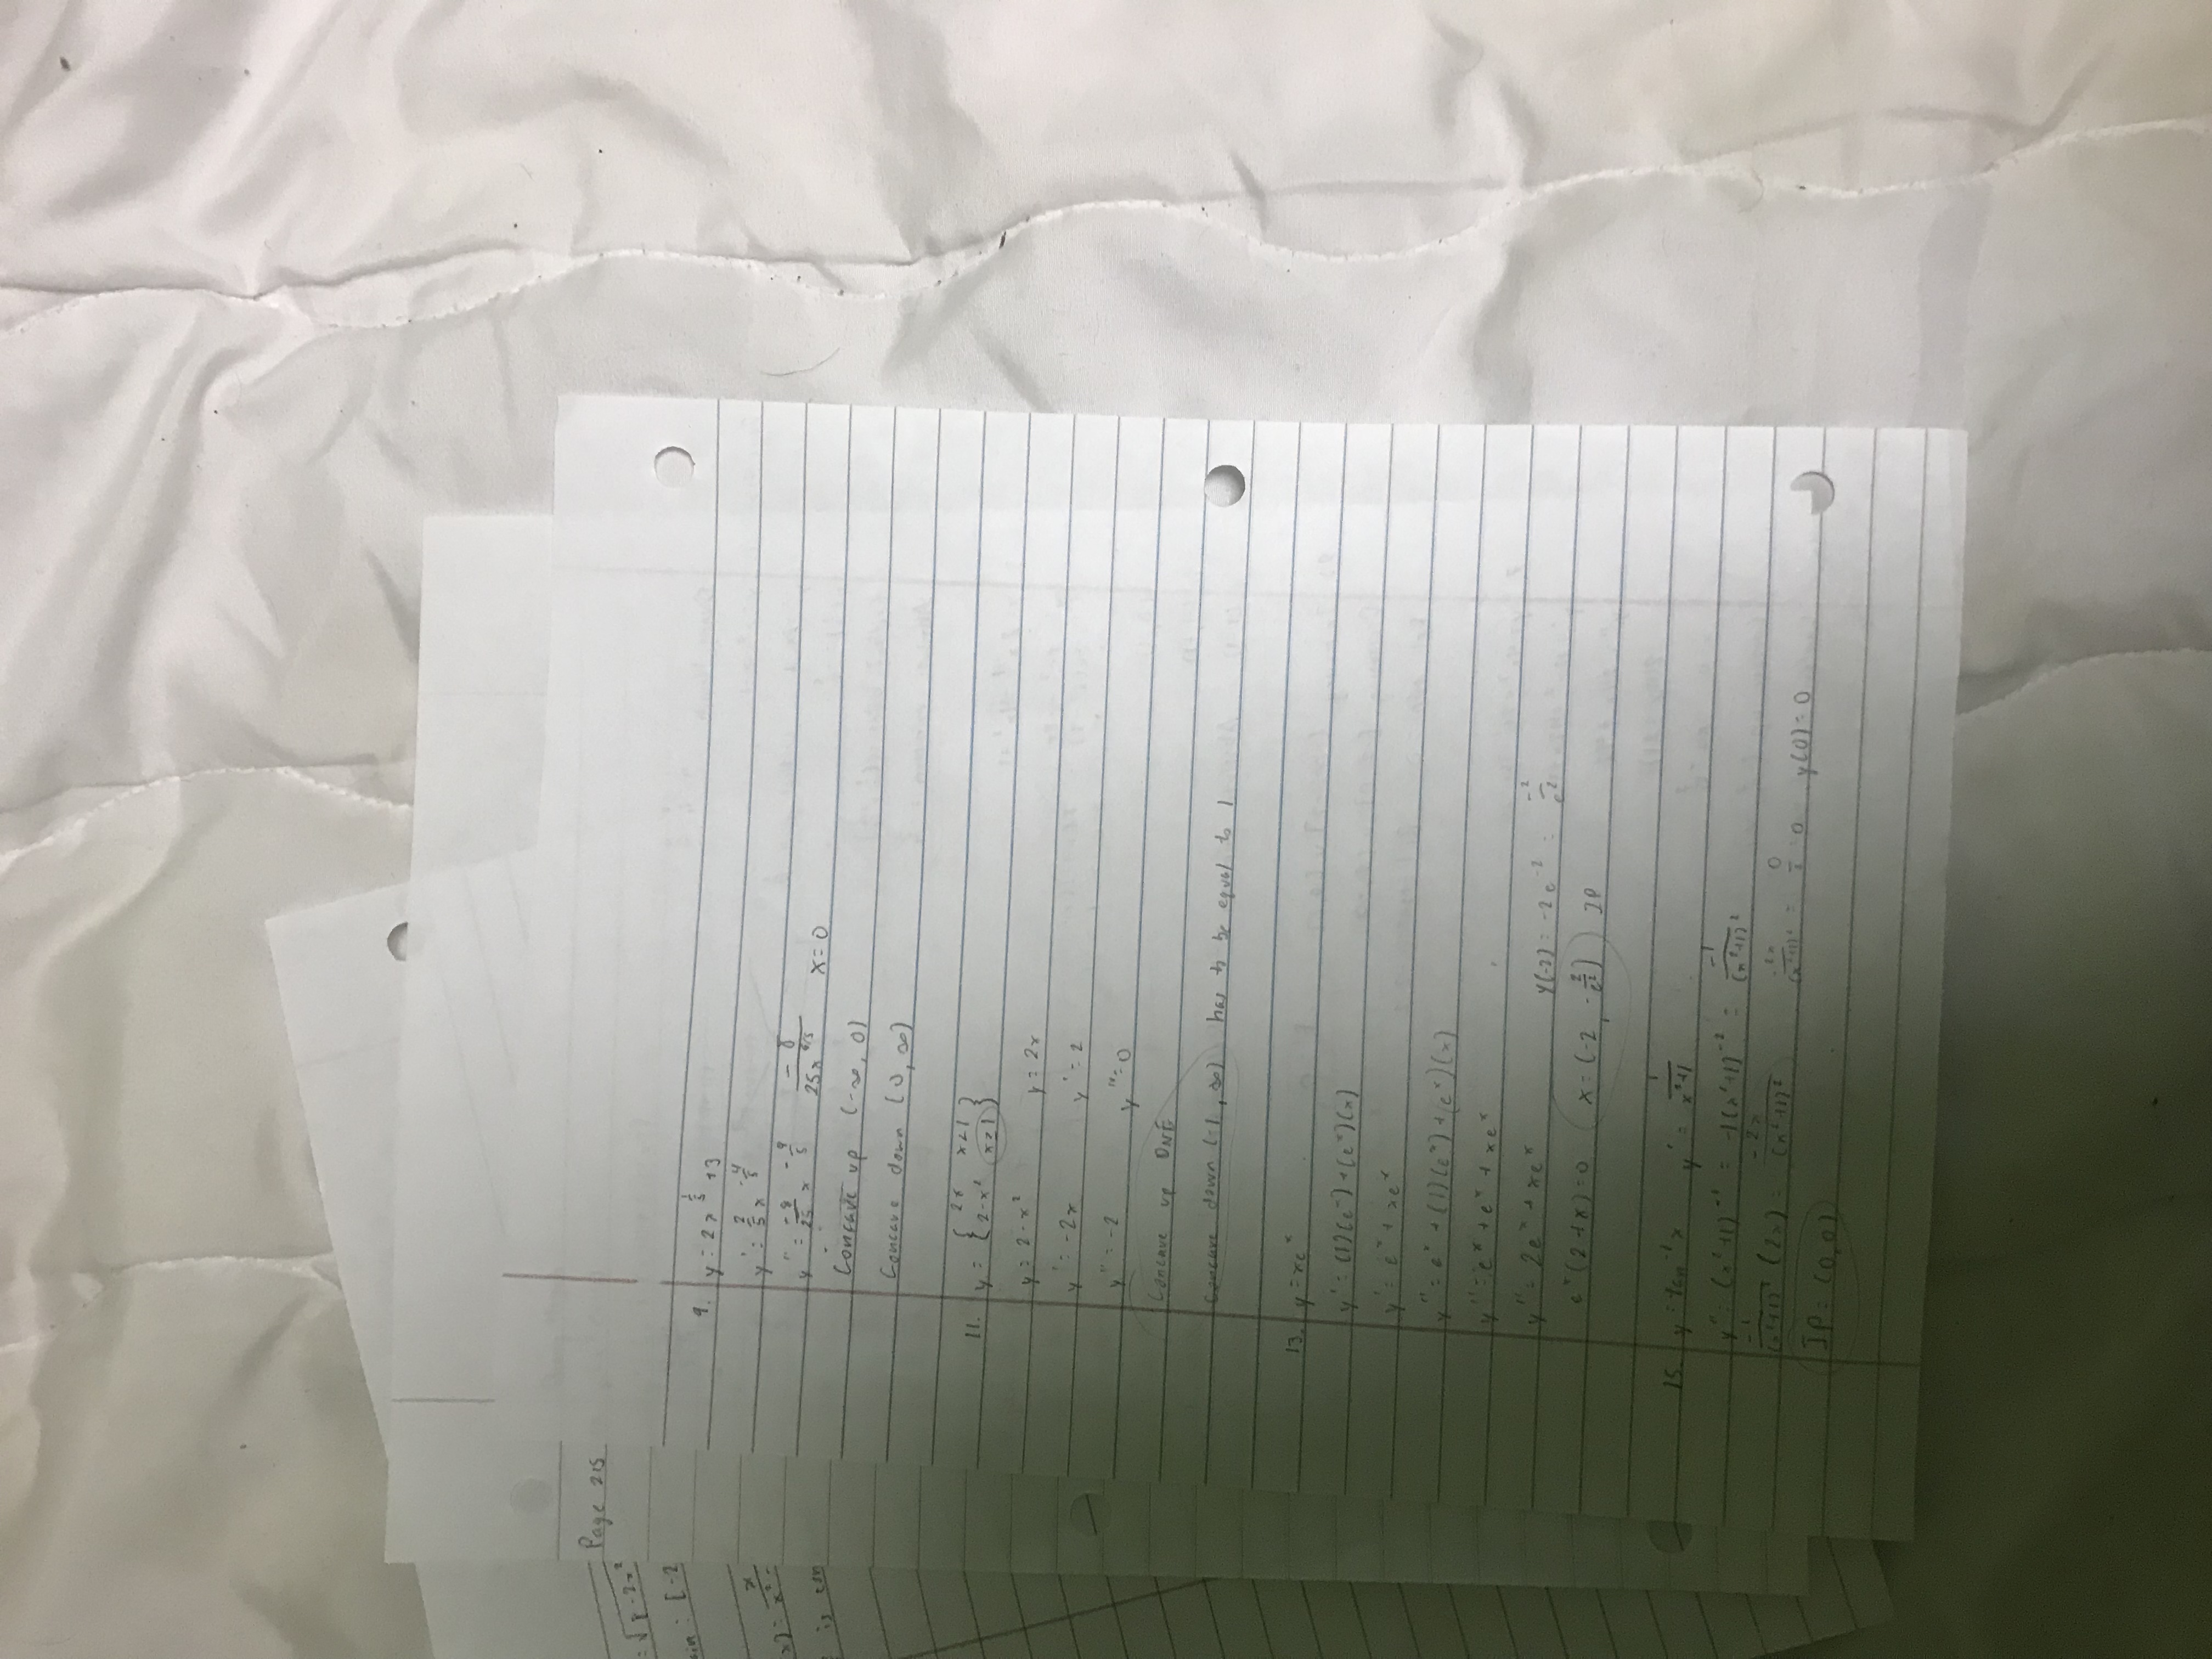 Page 215
= √8-2x²
: [-2
x
x² -
is con
9. y = 2x^(1/5) + 3
y' = 2/5 x^(-4/5)
y" = -8/25 x^(-9/5)   -8/(25x^(9/5))   x=0
Concave up (-∞, 0)
Concave down (0, ∞)
11. y = { 2x   x<1
2-x²   x≥1 }
y = 2-x²   y = 2x
y' = -2x   y' = 2
y" = -2   y" = 0
Concave up DNE
Concave down (-1, ∞) has to be equal to 1
13. y = xe^x
y' = (1)(e^x) + (e^x)(x)
y' = e^x + xe^x
y" = e^x + (1)(e^x) + (e^x)(x)
y" = e^x + e^x + xe^x
y" = 2e^x + xe^x   y(-2) = -2e^(-2) = -2/e²
e^x(2+x)=0   x = (-2, -2/e²)   IP
15. y = tan⁻¹x   y' = 1/(x²+1)
y" = (x²+1)⁻¹ = -1(x²+1)⁻² = -1/(x²+1)²
-1/(x²+1)² (2x) = -2x/(x²+1)²   -2x/(x²+1)² = 0/1 = 0   y(0) = 0
IP = (0,0)